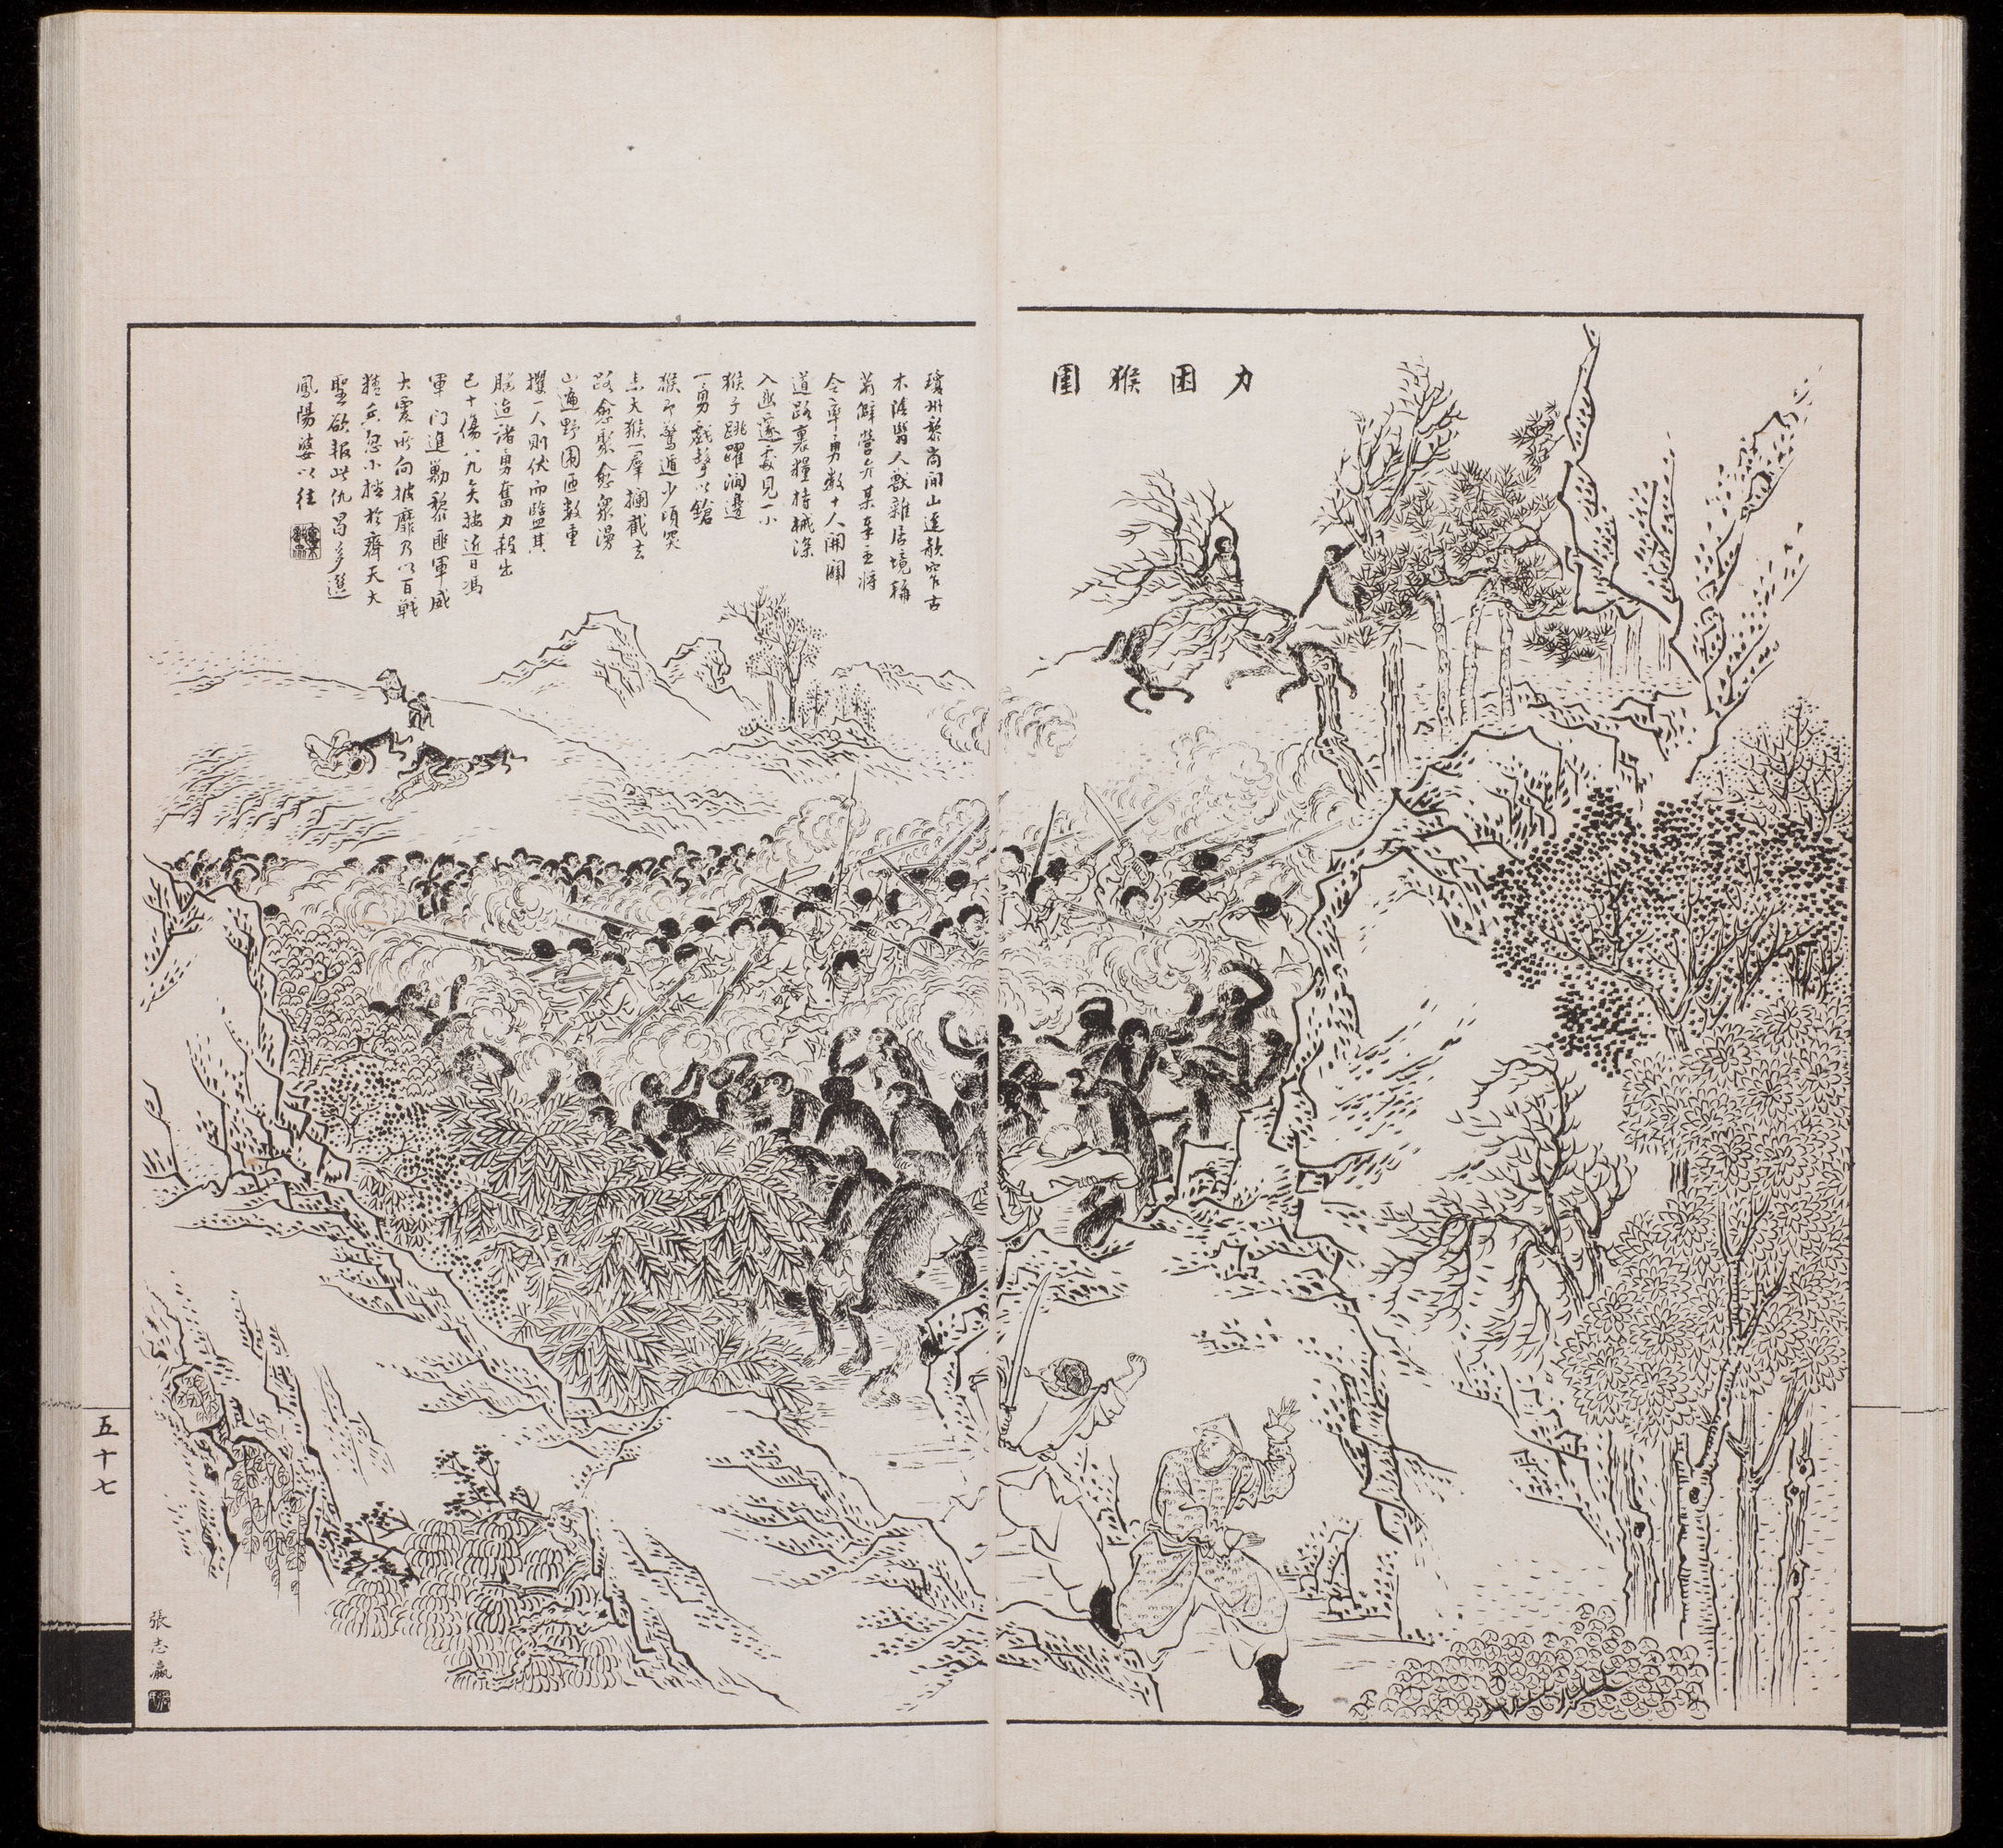 力困猴圍
瓊州黎崗間山逕欹窄古
木陰翳人獸雜居境稱
荒僻營弁某奉主將
令率勇數十人開闢
道路裹糧持械深
入邃處見一小
猴子跳躍澗邊
一勇戲擊以鎗
猴即驚遁少頃突
來大猴一羣攔截去
路愈聚愈衆漫
山遍野圍匝數重
攫一人則伏而盬其
腦迨諸勇奮力殺出
已十傷八九矣按近日馮
軍門進勦黎匪軍威
大震所向披靡乃以百戰
精兵忽小挫於齊天大
聖欲報此仇曷多選
鳳陽婆以往
五十七
張志瀛